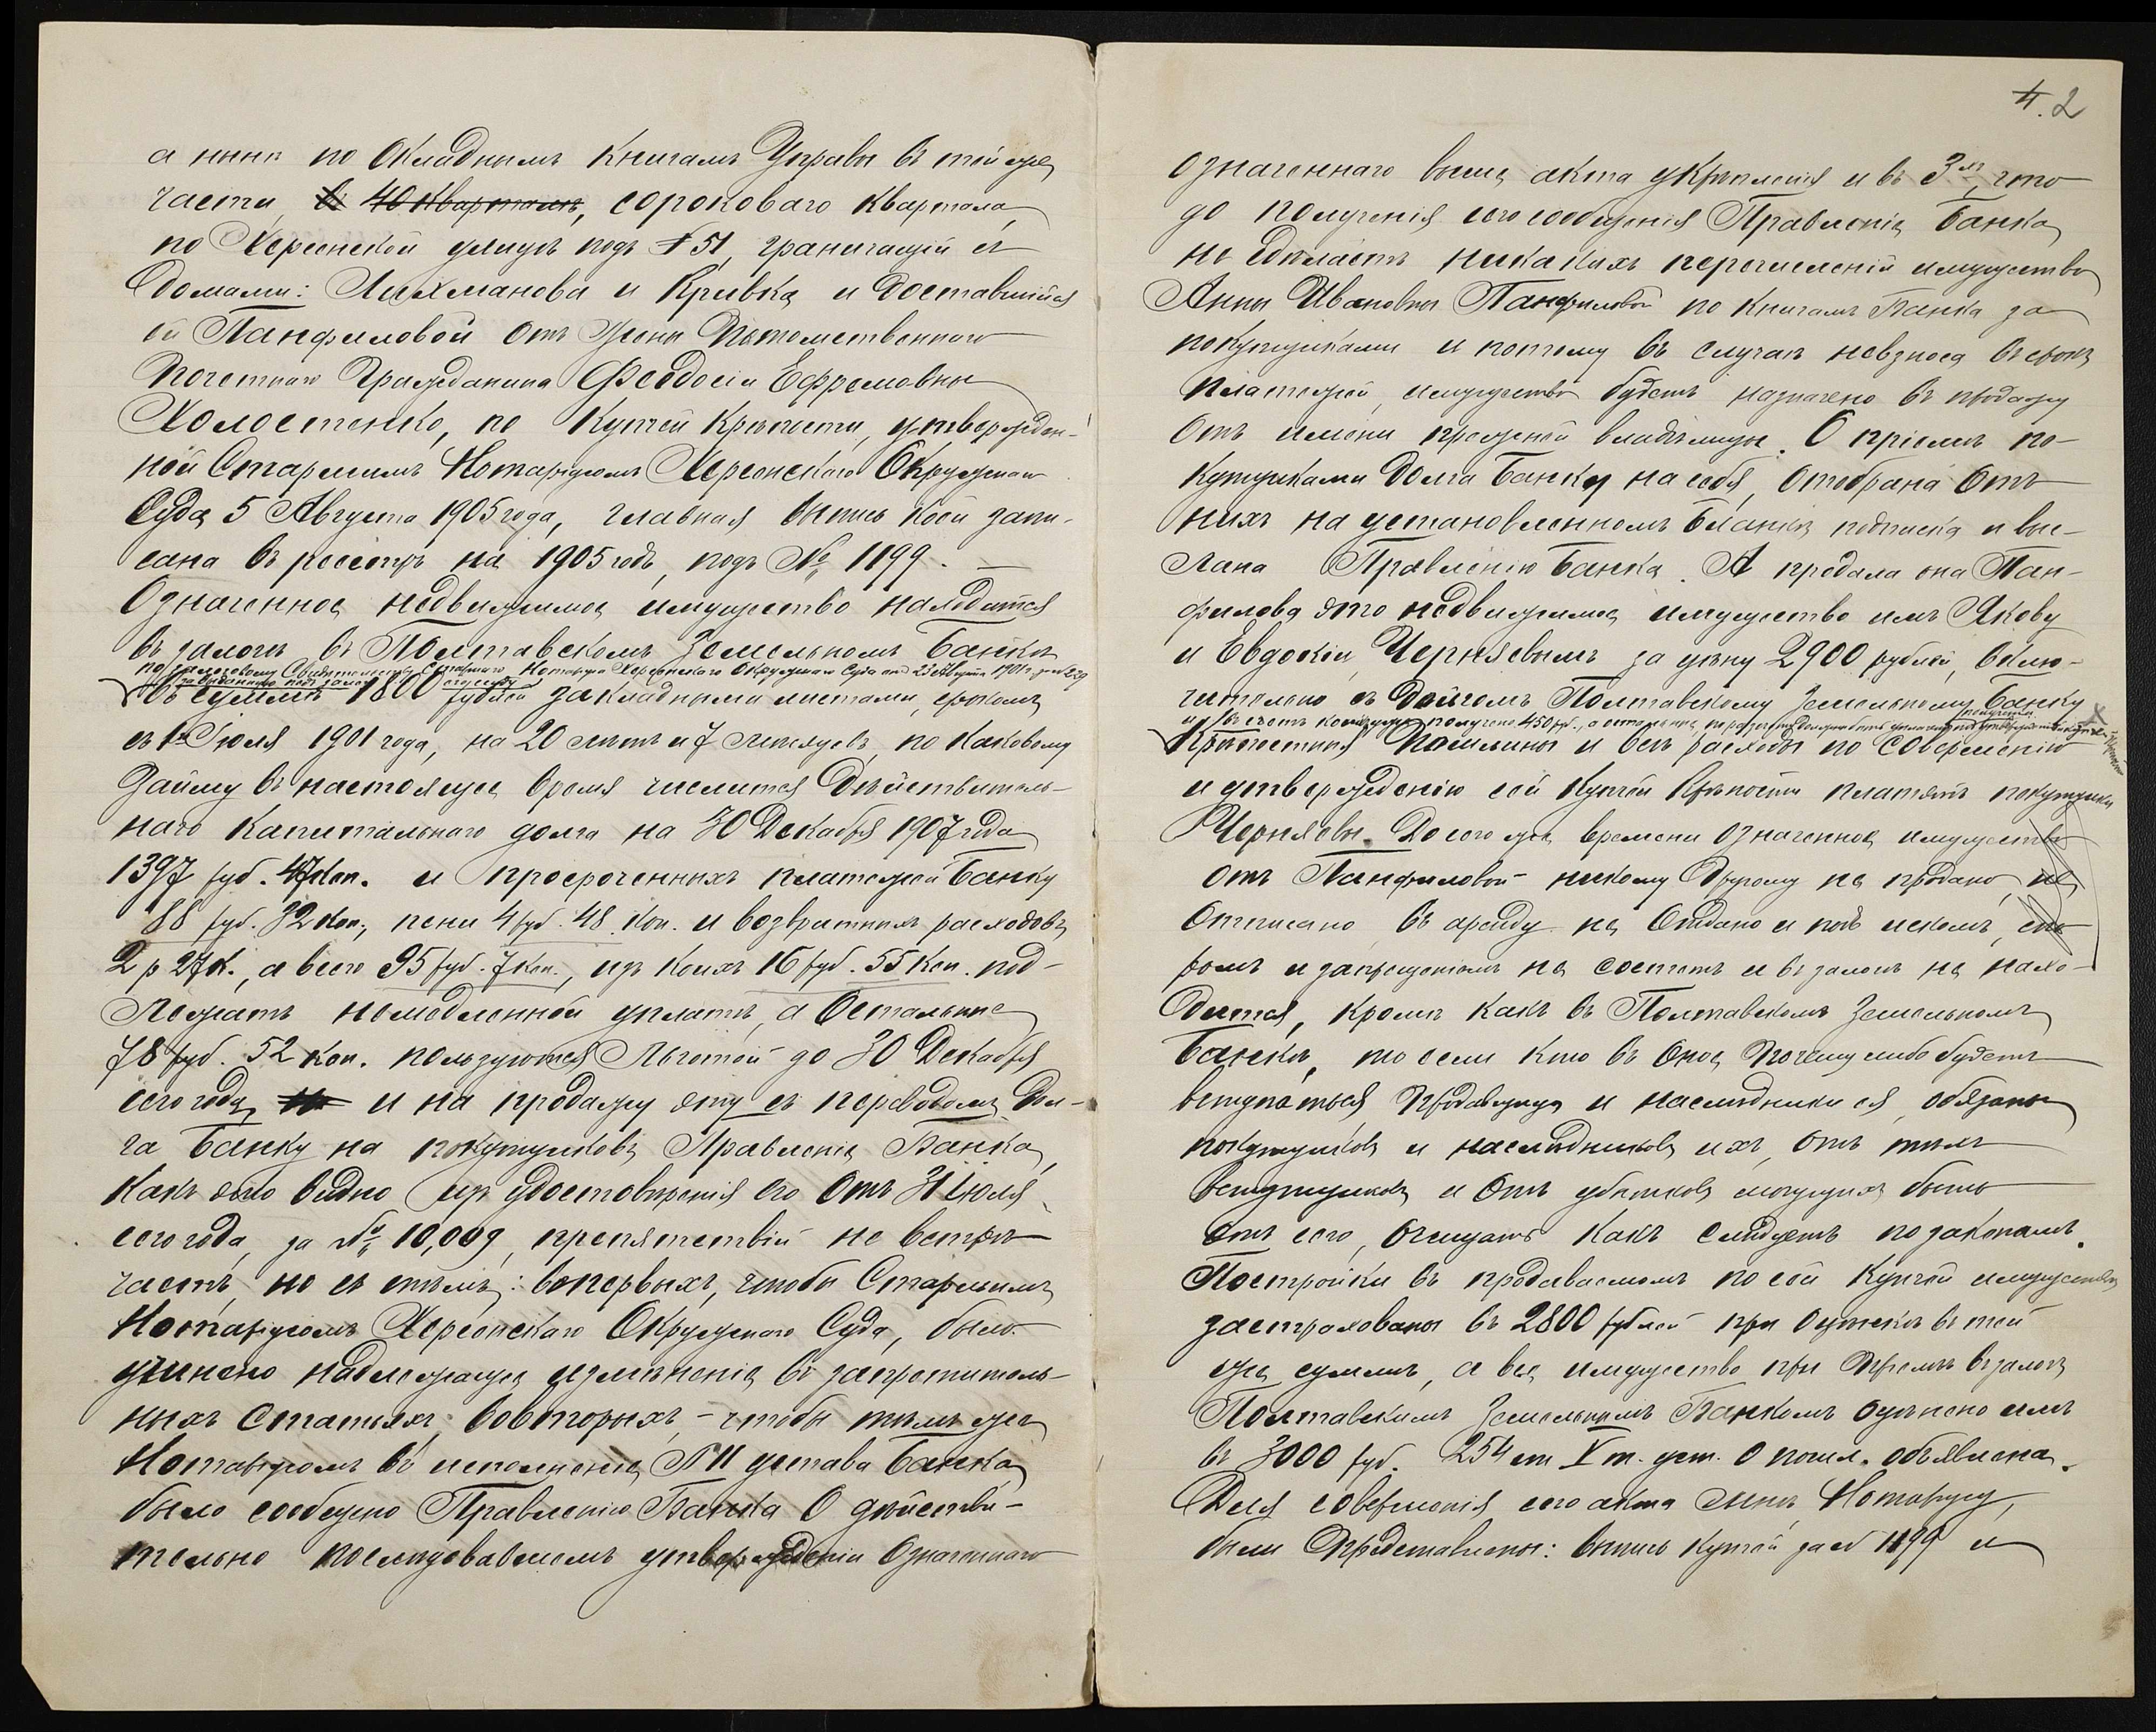 а нынѣ по Окладнымъ Книгамъ Управы въ той же
части, въ 40 кварталѣ, сороковаго квартала,
по Херсонской улицѣ подъ № 51, граничащій съ
домами: Лихманова и Кривка и доставшійся
ей Панфиловой отъ Жены Потомственнаго
Почетнаго Гражданина Феодосіи Ефремовны
Холостенко, по Купчей Крѣпости, утвержден-
ной Старшимъ Нотаріусомъ Херсонскаго Окружнаго
Суда 5 Августа 1905 года, главная выпись коей запи-
сана въ реестръ на 1905 годъ, подъ № 1199. —
Означенное недвижимое имущество находится
въ залогѣ въ Полтавскомъ Земельномъ Банкѣ
по залоговому Свидѣтельству Старшаго Нотаріуса Херсонскаго Окружнаго Суда отъ 23 Августа 1901 г. за №
въ суммѣ 1800 рублей закладными листами, срокомъ
съ 1го Іюля 1901 года, на 20 лѣтъ и 7 мѣсяцевъ, по каковому
займу въ настоящее время числится дѣйствитель-
наго капитальнаго долга на 30 Декабря 1907 года
1397 руб. 47 коп. и просроченныхъ платежей Банку
88 руб. 32 коп., пени 4 руб. 48 коп. и возвратныхъ расходовъ
2 р 27 к., а всего 95 руб. 7 коп., изъ коихъ 16 руб. 55 коп. под-
лежатъ немедленной уплатѣ, а остальные
78 руб. 52 коп. пользуются льготой до 30 Декабря
сего года, и на продажу эту съ переводомъ дол-
га Банку на покупщиковъ Правленіе Банка,
какъ это видно изъ удостовѣренія его отъ 31 Іюля
сего года, за № 10,009, препятствій не встрѣ-
чаетъ, но съ тѣмъ: вопервыхъ, чтобы Старшимъ
Нотаріусомъ Херсонскаго Окружнаго Суда, было
учинено надлежащее измѣненіе въ запретитель-
ныхъ статьяхъ, вовторыхъ, – чтобы тѣмъ же
Нотаріусомъ во исполненіе § 11 устава Банка,
было сообщено Правленію Банка о дѣйстви-
тельно послѣдовавшемъ утвержденіи Означеннаго
4. 2
означеннаго выше акта укрѣпленія и въ 3хъ, что
до полученія сего сообщенія Правленіе Банка
не сдѣлаетъ никакихъ перечисленій имущества
Анны Ивановны Панфиловой по книгамъ Банка за
покупщиками и потому въ случаѣ невзноса въ срокъ
платежей, имущество будетъ назначено въ продажу
отъ имени прежней владѣлицы. О пріемѣ по-
купщиками долга Банку на себя, отобрана отъ
нихъ на установленномъ бланкѣ подписка и выс-
лана Правленію Банка. А продала она Пан-
филова это недвижимое имущество имъ Якову
и Евдокіи Чернявымъ за цѣну 2900 рублей, вклю-
чительно съ долгомъ Полтавскому Земельному Банку
въ счетъ которыхъ получено 450 руб., а остальные
Крѣпостныя пошлины и всѣ расходы по совершенію
и утвержденію сей Купчей Крѣпости платятъ покупщики
Чернявы. До сего же времени означенное имущество
отъ Панфиловой никому другому не продано, не
отписано, въ аренду не отдано и подъ искомъ, спо-
ромъ и запрещеніемъ не состоитъ и въ залогѣ не нахо-
дится, кромѣ какъ въ Полтавскомъ Земельномъ
Банкѣ, то если кто въ оное почему либо будетъ
вступаться продавщица и наслѣдники ея, обязаны
покупщиковъ и наслѣдниковъ ихъ, отъ тѣхъ
вступщиковъ и отъ убытковъ могущихъ быть
отъ сего, очищать какъ слѣдуетъ по законамъ.
Постройки въ продаваемомъ по сей купчей имуществѣ
застрахованы въ 2800 рублей при оцѣнкѣ въ той
же суммѣ, а все имущество при пріемѣ въ залогъ
Полтавскимъ Земельнымъ Банкомъ оцѣнено имъ
въ 3000 руб. 254 ст V т. уст. о пошл. объявлена.
Для совершенія сего акта мнѣ, Нотаріусу,
были представлены: выпись купчей за № 1199 и